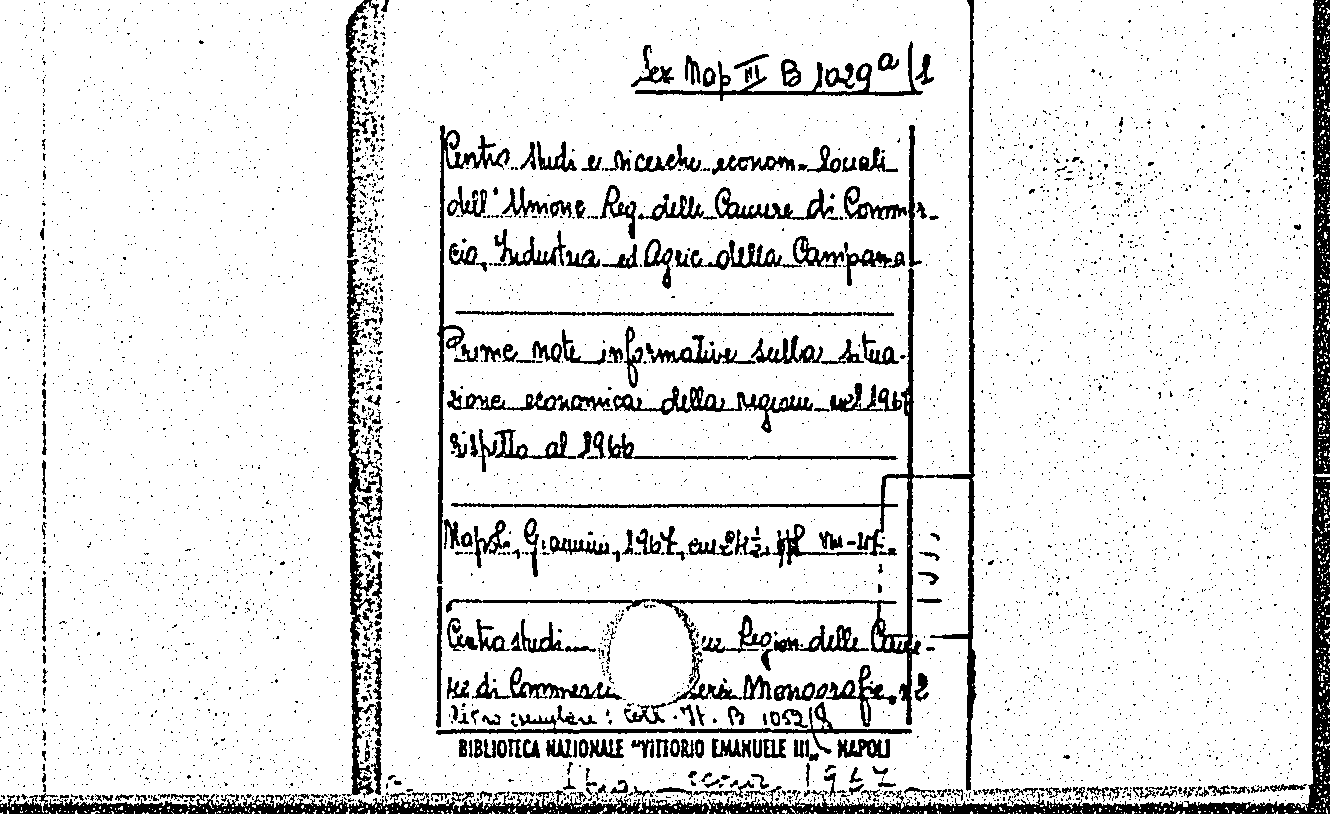 Sez Nap III B 1029 a/1
Centro studi e ricerche econom. sociali
dell'Unione Reg. delle Camere di Commer-
cio, Industria ed Agric. della Campania
Prime note informative sulla situa-
zione economica della regione nel 1967
rispetto al 1966
Napoli, Giannini, 1967, cm 24½, pp.
Centro studi... Region. delle Came-
re di Commerci Serie Monografie, n 2
Altro esemplare: Coll. It. B 1052/8
BIBLIOTECA NAZIONALE "VITTORIO EMANUELE III" - NAPOLI
1967